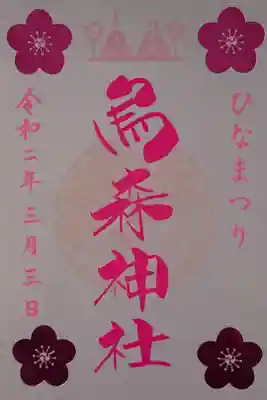 ひなまつり
烏森神社
令和二年三月三日